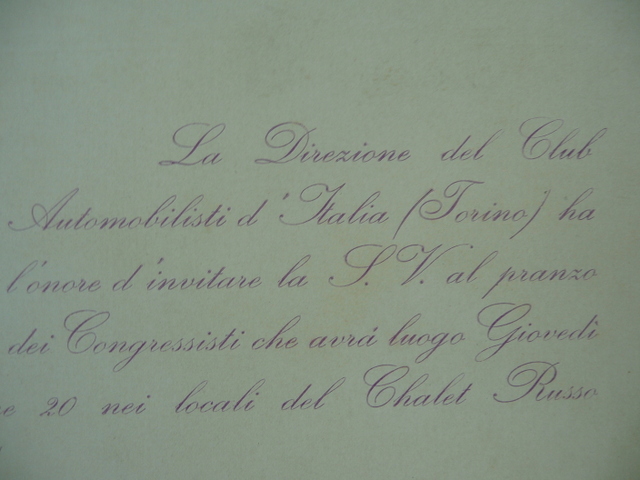 La Direzione del Club
Automobilisti d'Italia (Torino) ha
l'onore d'invitare la S. V. al pranzo
dei Congressisti che avrá luogo Giovedì
e 20 nei locali del Chalet Russo